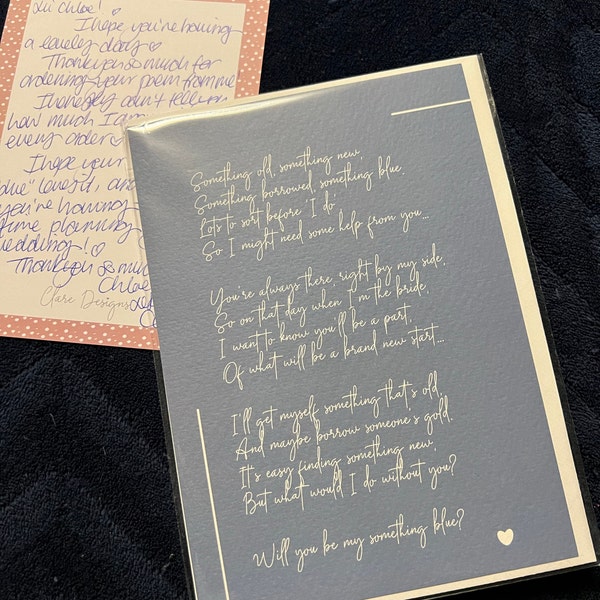 Hi Chloe!
I hope you're having
a lovely day
Thank you so much for
ordering your poem from me
I honestly can't tell you
how much I
every order
I hope your
blue" loves it, and
you're having
time planning
wedding!
Thank you so much
Chloe
Clare Designs
Something old, something new,
Something borrowed, something blue,
Lots to sort before 'I do'
So I might need some help from you...
You're always there, right by my side,
So on that day when I'm the bride,
I want to know you'll be a part,
Of what will be a brand new start...
I'll get myself something that's old,
And maybe borrow someone's gold.
It's easy finding something new,
But what would I do without you?
Will you be my something blue?